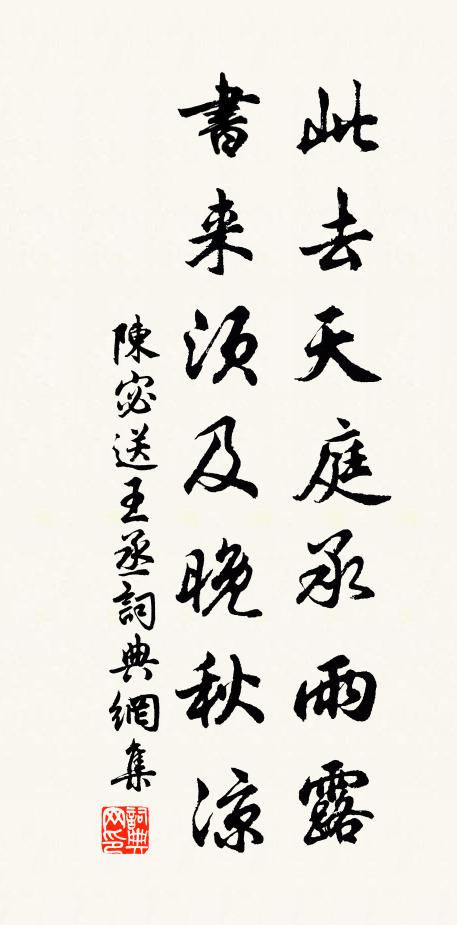 此去天庭承雨露
書来须及晚秋凉
陳宓送王丞詞典網集
詞典网印